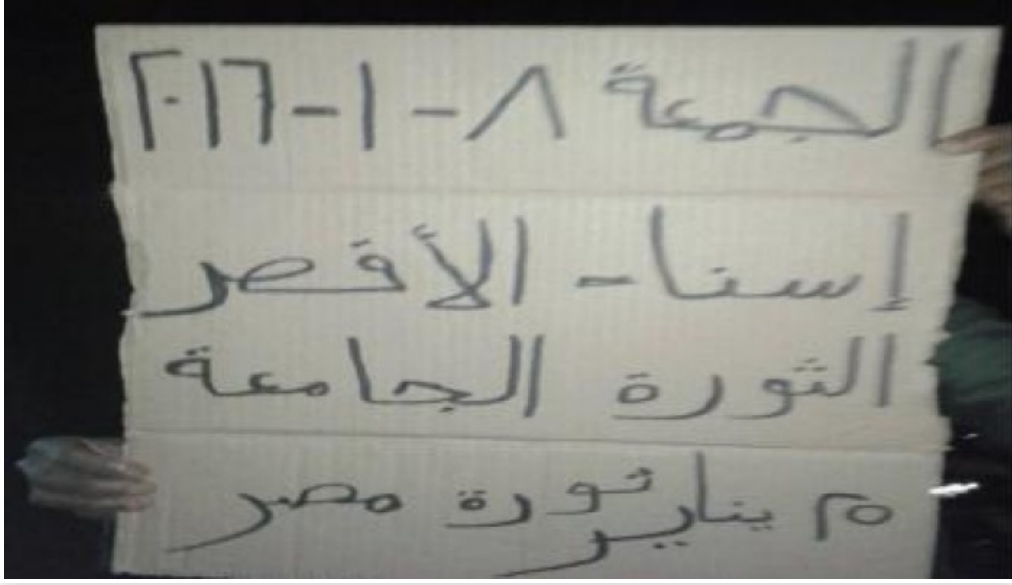 الجمعة ٨-١-٢٠١٦
إسنا - الأقصر
الثورة الجامعة
٢٥ يناير ثورة مصر